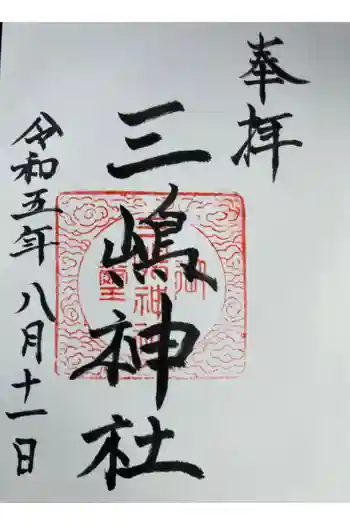 奉拝
三嶋神社
令和五年八月十一日